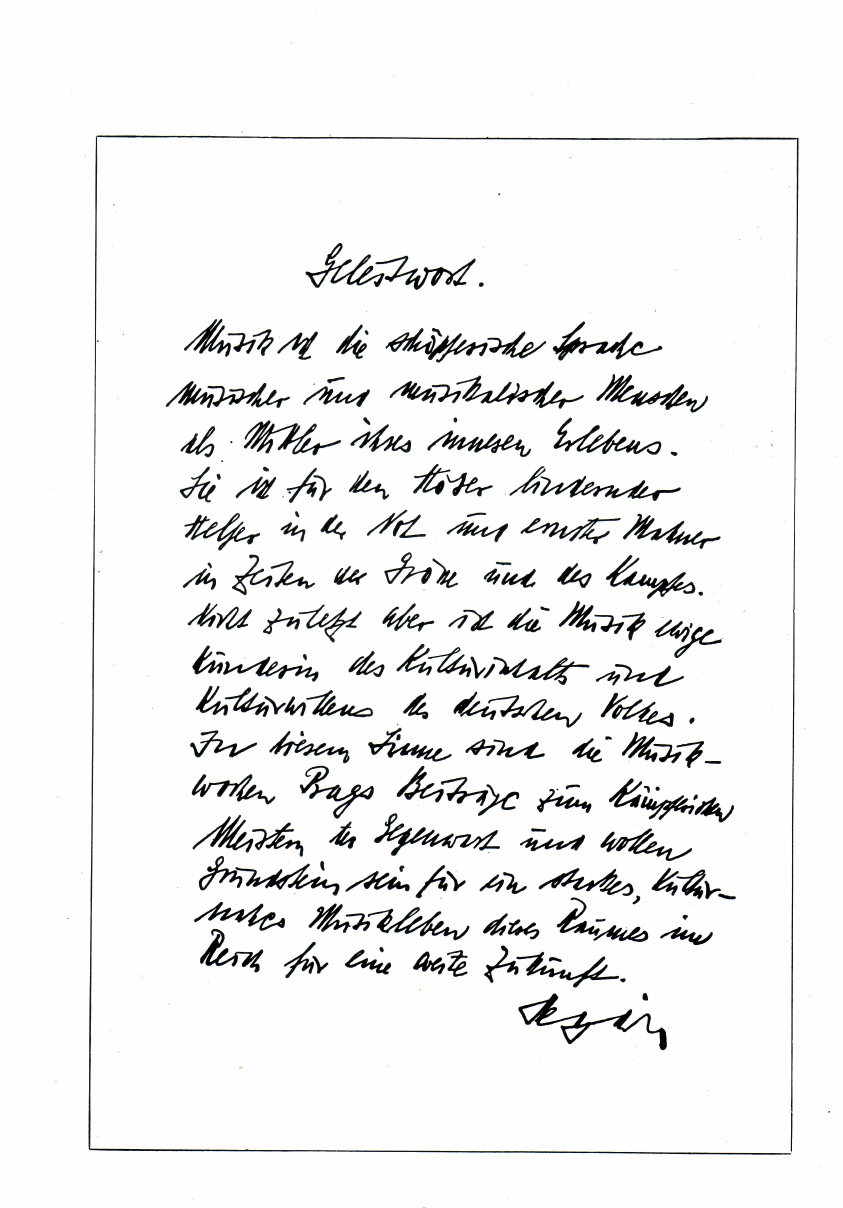 Geleitwort.
Musik ist die schöpferische Sprache
musischer und musikalischer Menschen
als Mittler ihres inneren Erlebens.
Sie ist für den Hörer lindernder
Helfer in der Not und ernster Mahner
in Zeiten der Größe und des Kampfes.
Nicht zuletzt aber ist die Musik ewige
Künderin des Kulturinhalts und
Kulturwillens des deutschen Volkes.
In diesem Sinne sind die Musik-
wochen Prags Beiträge zum kämpferischen
Meistern der Gegenwart und wollen
Grundstein sein für ein starkes, kultur-
nahes Musikleben dieses Raumes im
Reich für eine weite Zukunft.